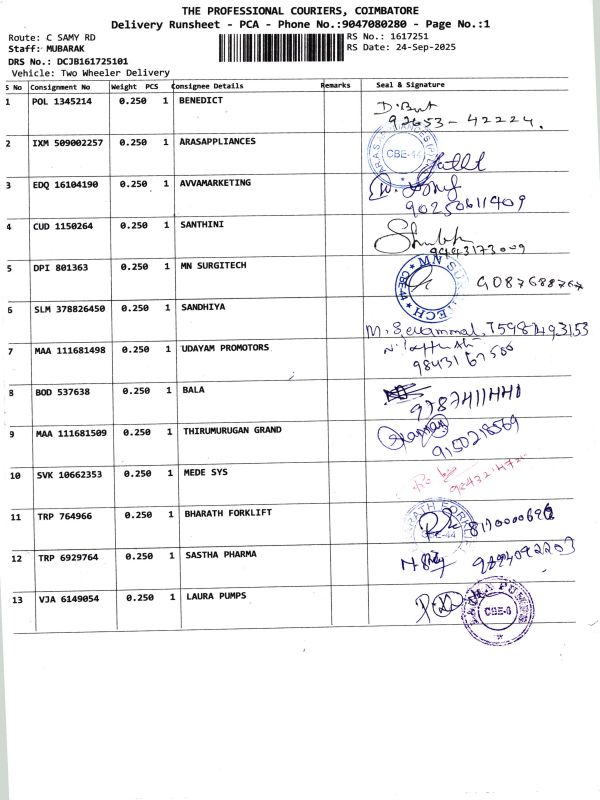 THE PROFESSIONAL COURIERS, COIMBATORE
Delivery Runsheet - PCA - Phone No.:9047080280 - Page No.:1
Route: C SAMY RD
RS No.: 1617251
Staff: MUBARAK
RS Date: 24-Sep-2025
DRS No.: DCJB161725101
Vehicle: Two Wheeler Delivery
S No Consignment No Weight PCS Consignee Details Remarks Seal & Signature
1 POL 1345214 0.250 1 BENEDICT
92653-42224.
2 IXM 509002257 0.250 1 ARASAPPLIANCES
CBE-44
3 EDQ 16104190 0.250 1 AVVAMARKETING
90250611409
4 CUD 1150264 0.250 1 SANTHINI
9443173009
5 DPI 801363 0.250 1 MN SURGITECH
MN SURGITECH CBE-44
9087688767
6 SLM 378826450 0.250 1 SANDHIYA
7 MAA 111681498 0.250 1 UDAYAM PROMOTORS
8 BOD 537638 0.250 1 BALA
9 MAA 111681509 0.250 1 THIRUMURUGAN GRAND
9150218569
10 SVK 10662353 0.250 1 MEDE SYS
11 TRP 764966 0.250 1 BHARATH FORKLIFT
CBE-44
12 TRP 6929764 0.250 1 SASTHA PHARMA
13 VJA 6149054 0.250 1 LAURA PUMPS
LAURA PUMPS CBE-6